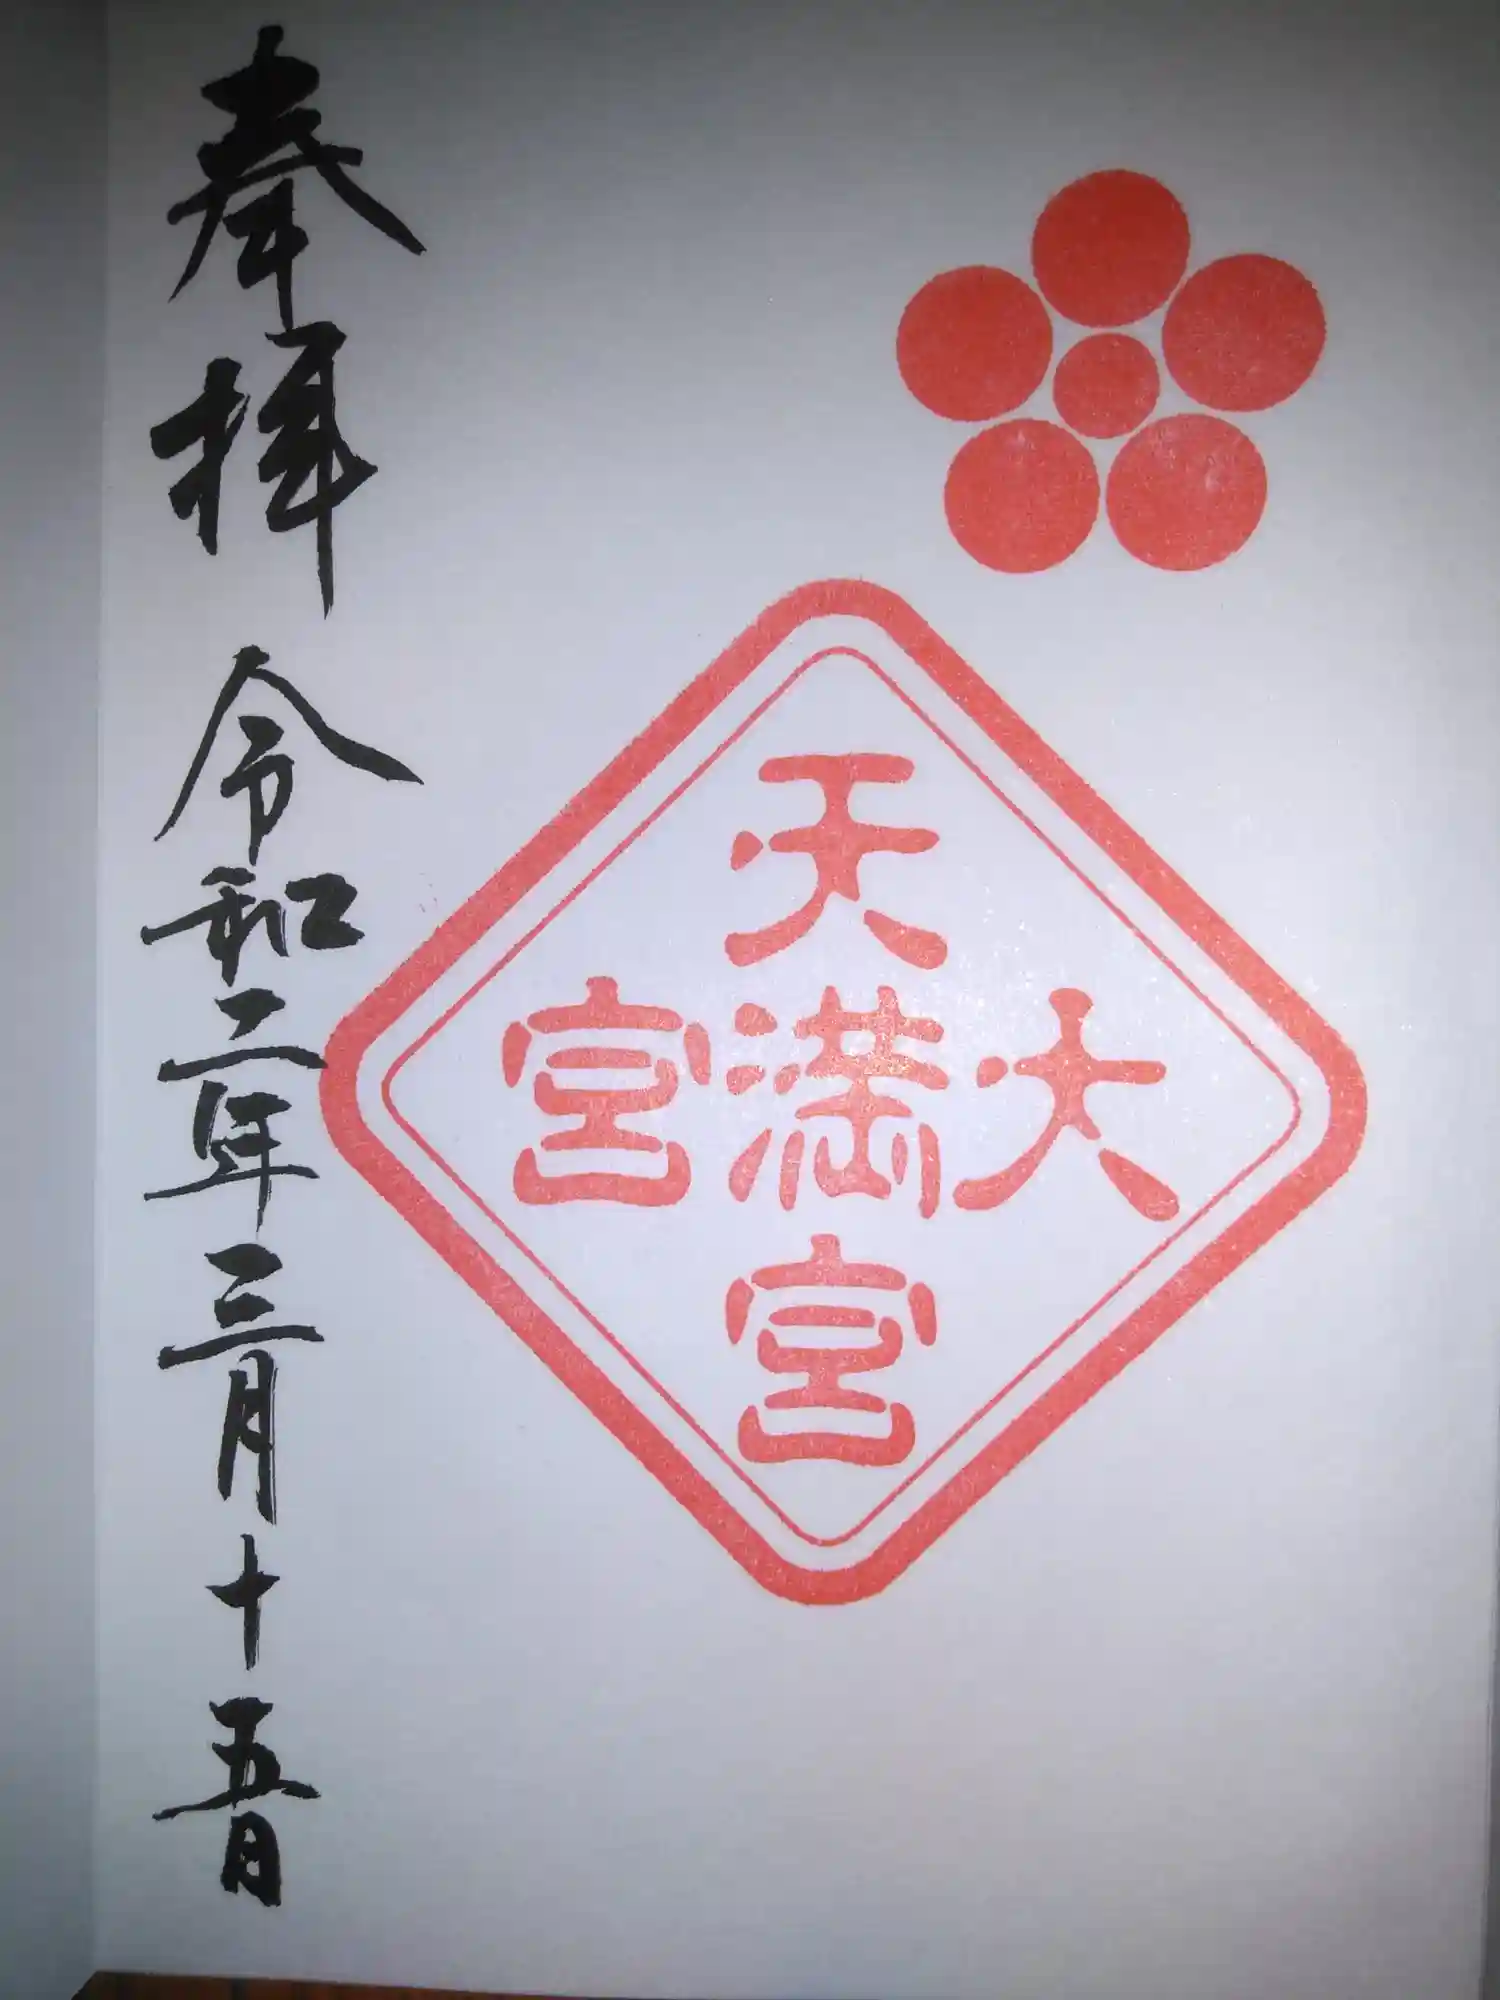 大
天満宮
宮
奉拝 令和二年三月十五日